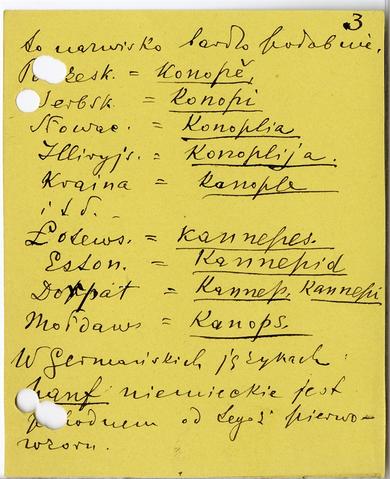 3
to nazwisko bardzo podobnie,
= Konopě,
Serbsk. = Konopi
Słowac. = Konoplia
Illiryjs. = Konoplija.
Kraina = Kanople
i t d.
Łotews. = Kannepes.
Eston. = Kannepid
Dorpat = Kannep. Kannepi
Mołdaws = Kanops.
W Germańskich językach:
hanf niemieckie jest
pochodnem od tegoż pierwo-
wzoru.